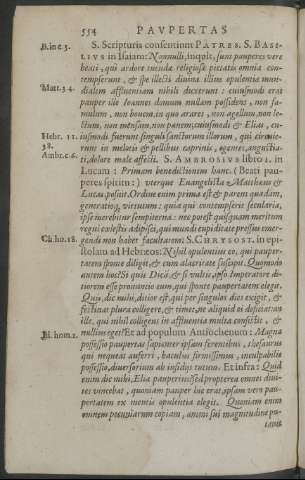 554 PAVPERTAS
B. in c. 3. S. Scripturis consentiunt PATRES. S. BASI-
LIVS in Isaiam: Nonnulli, inquit, sunt pauperes vere
beati, qui ardore quodam religiosæ pietatis omnia con-
tempserunt, & spe illecti divina illius opulentia mun-
Matt. 3 4. dialem affluentiam nihili duxerunt: cuiusmodi erat
pauper ille Ioannes domum nullam possidens, non fa-
mulum, non bovem, in quo araret, non agellum, non le-
ctum, non mensam, non panem; eiusmodi & Elias, cu-
Hebr. 11. iusmodi fuerunt singuli sanctorum illorum, qui circuie-
38. runt in melotis & pellibus caprinis, egentes, angustia-
Amb. c. 6. ti, dolore male affecti. S. AMBROSIVS libro 1. in
Lucam: Primam benedictionem hanc (Beati pau-
peres spiritu:) uterque Evangelista Matthæus &
Lucas posuit. Ordine enim prima est & parens quædam,
generatioq, virtutum: quia qui contempserit secularia,
ipse merebitur sempiterna: nec potest quisquam meritum
regni cælestis adipisci, qui mundi cupiditate pressus emer-
Ch. ho. 18. gendi non habet facultatem. S. CHRYSOST. in epi-
stolam ad Hebræos: Nihil opulentius eo, qui pauper-
tatem sponte diligit, & cum alacritate suscipit. Quomodo
autem hoc? Si quis
toribus esse pronuntio eum, qui sponte paupertatem elegit.
Quis, dic mihi, ditior est, qui per singulos dies exigit, &
festinat plura colligere, & timet, ne aliquid ei desit: an
ille, qui nihil colligens in affluentia multa consistit, &
Bi. hom. 2. nullius eget? Et ad populum Antiochenum: Magna
possessio paupertas sapienter ipsam ferentibus, thesaurus
qui nequeat auferri, baculus firmissimus, inculpabilis
possessio, diversorium ab insidiis tutum. Et infra: Quid
enim dic mihi, Elia pauperius? sed propterea omnes divi-
tes vincebat, quoniam pauper hic erat, ipsam vero pau-
pertatem ex mentis opulentia elegit. Quoniam enim
omnem pecuniarum copiam, animi sui magnitudine pu-
tavit